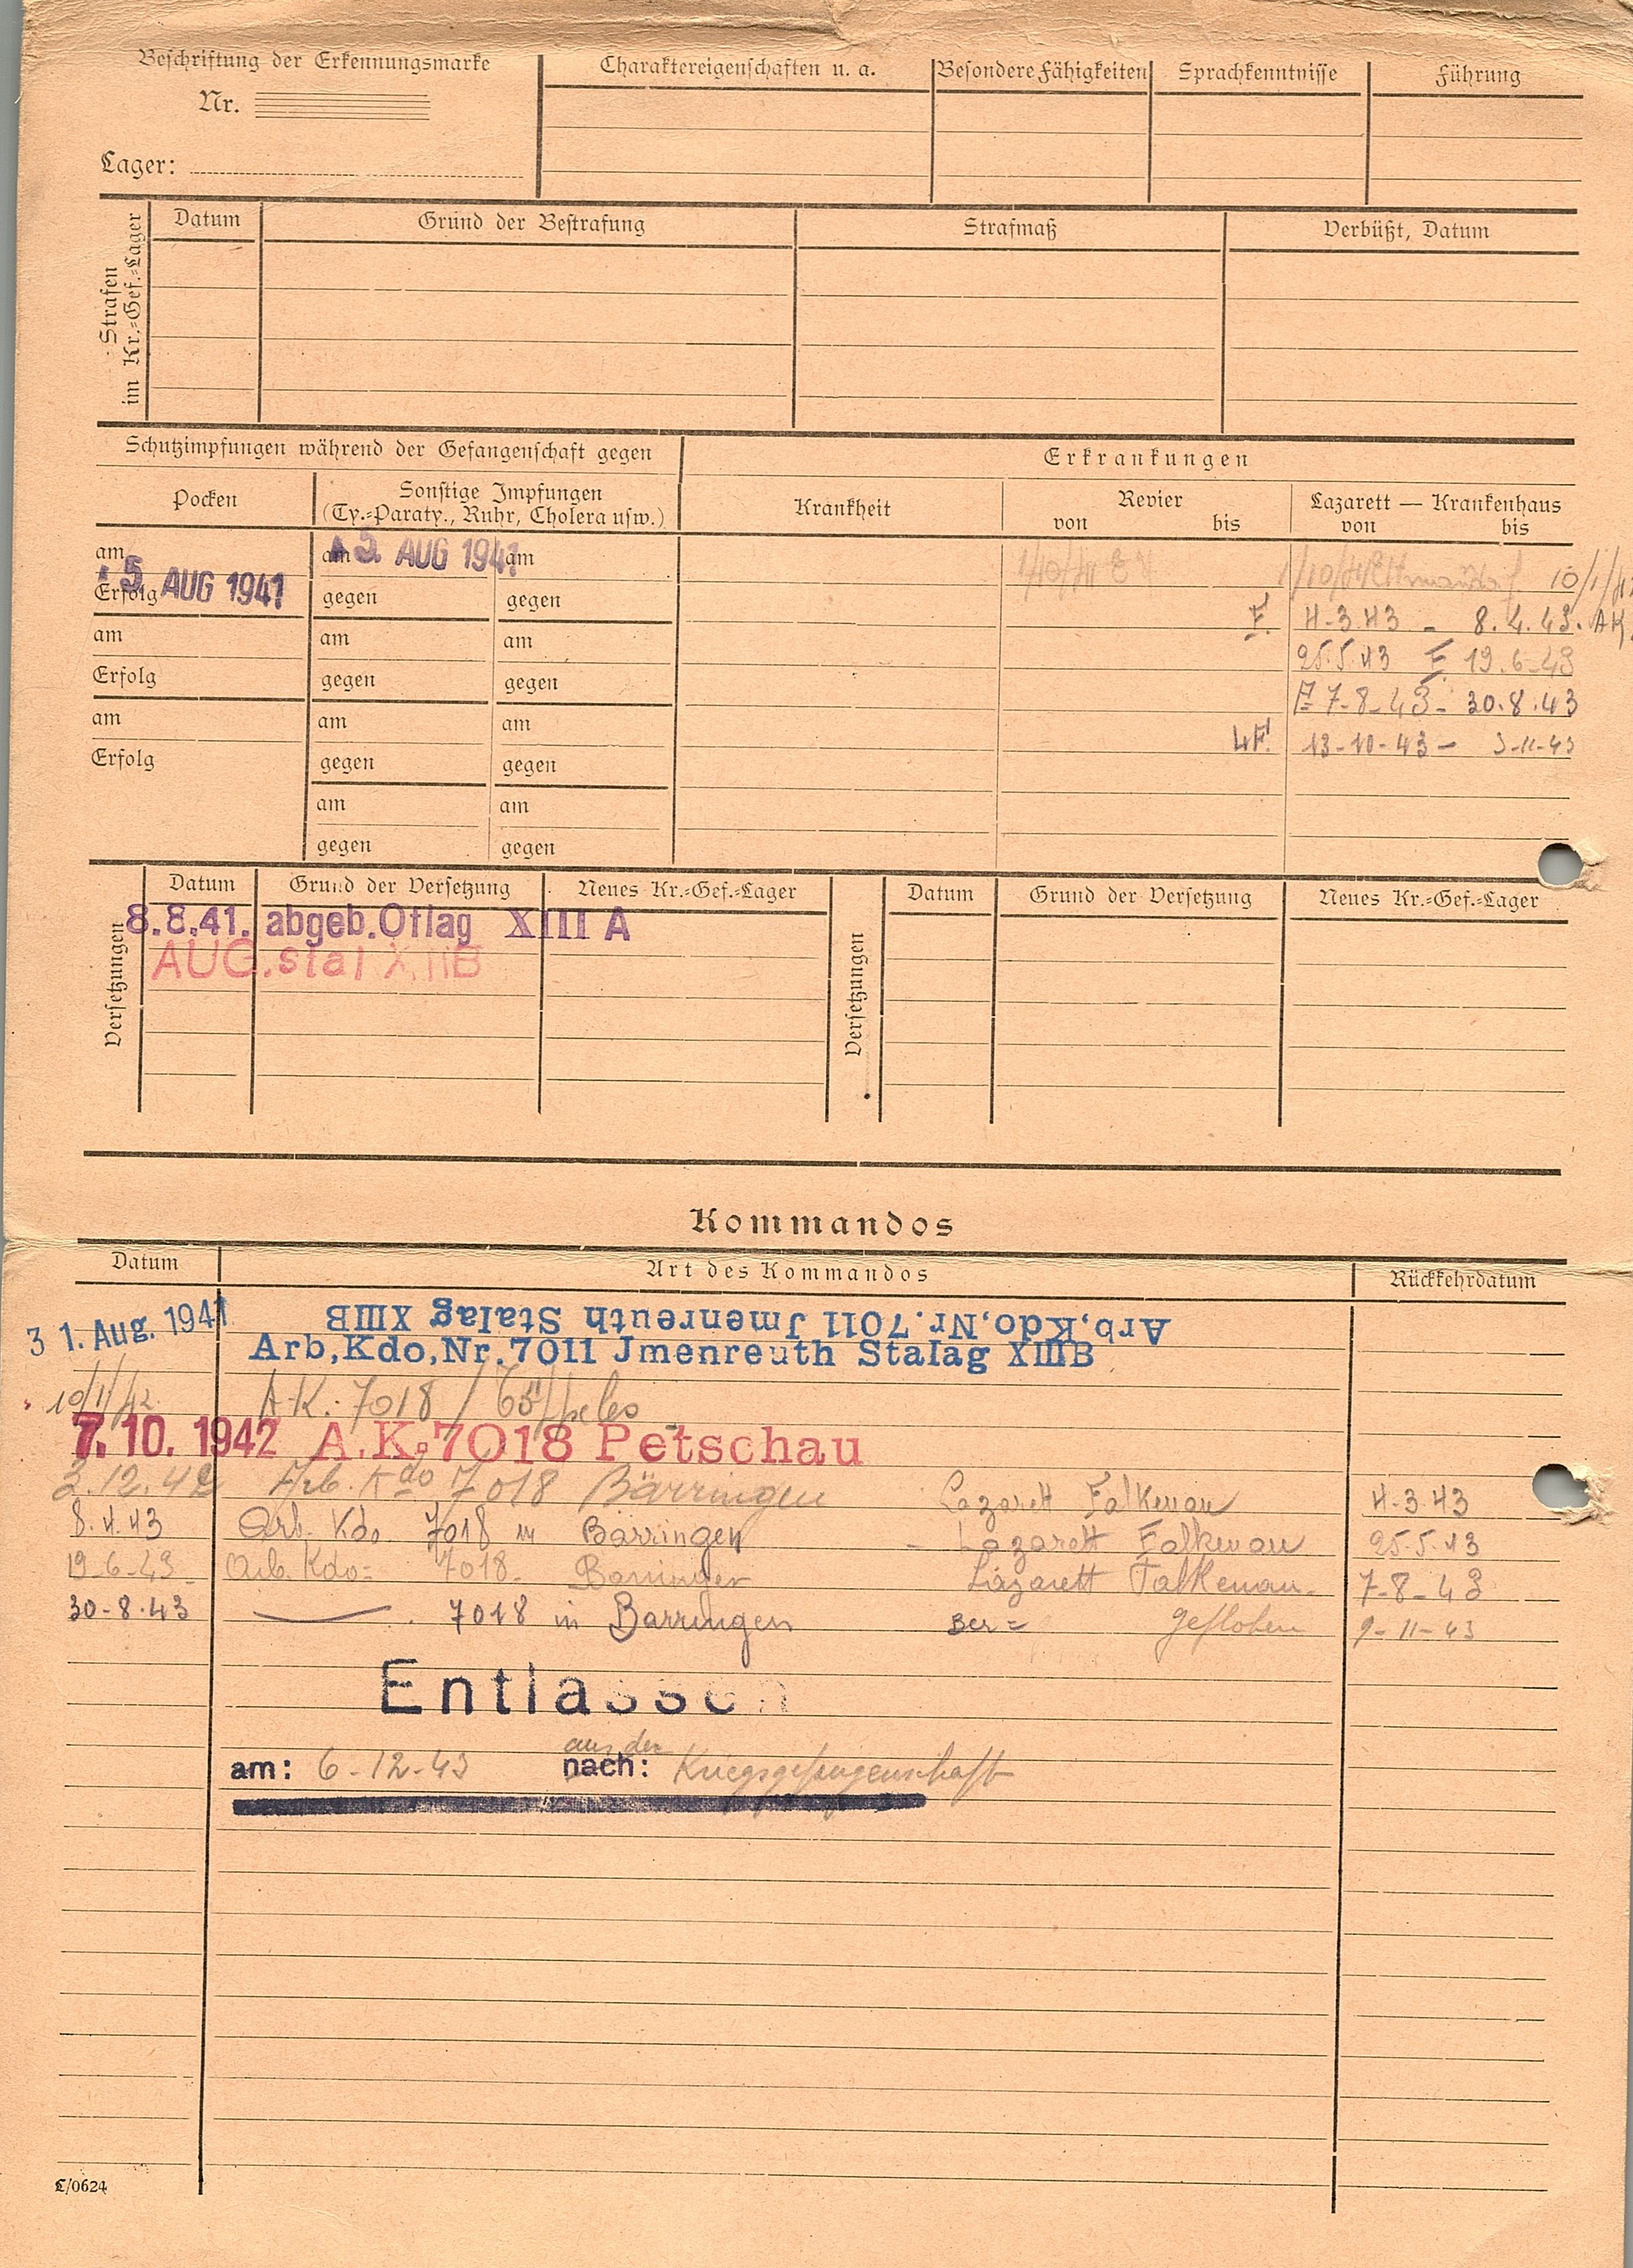 Beschriftung der Erkennungsmarke
Nr.
Lager:
Charaktereigenschaften u. a.
Besondere Fähigkeiten
Sprachkenntnisse
Führung
Strafen
im Kr.=Gef.=Lager
Datum
Grund der Bestrafung
Strafmaß
Verbüßt, Datum
Schutzimpfungen während der Gefangenschaft gegen
Erkrankungen
Pocken
Sonstige Impfungen
(Ty.=Paraty., Ruhr, Cholera usw.)
Krankheit
Revier
von bis
Lazarett — Krankenhaus
von bis
am am 5. AUG 1941 am
5. AUG 1941
Erfolg gegen gegen
10/1/42
F. 4-3.43 - 8.4.43. AK.
am am am
25.5.43 F 19.6-43
Erfolg gegen gegen
7-8-43- 30.8.43
am am am
13-10-43 - 3-11-43
Erfolg gegen gegen
am am
gegen gegen
Versetzungen
Datum Grund der Versetzung Neues Kr.=Gef.=Lager
8.8.41. abgeb.Oflag XIII A
AUG.stal XIIIB
Versetzungen
Datum Grund der Versetzung Neues Kr.=Gef.=Lager
Kommandos
Datum Art des Kommandos Rückkehrdatum
Arb,Kdo,Nr.7011 Jmenreuth Stalag XIIIB
31. Aug. 1941 Arb,Kdo,Nr.7011 Jmenreuth Stalag XIIIB
10/1/42 A.K.: 7018 /
7. 10. 1942 A.K.7018 Petschau
3.12.42 Arb. Kdo 7018 Bärringen Lazarett Falkenau 4-3.43
8.4.43 Arb. Kdo. 7018 in Bärringen - Lazarett Falkenau 25.5.43
19-6-43- Arb. Kdo= 7018- Barringen Lazarett Falkenau- 7-8-43
30-8.43 — . 7018 in Barringen Ber= geflohen 9-11-43
Entlassen
aus der
am: 6-12-43 nach: Kriegsgefangenschaft
C/0624